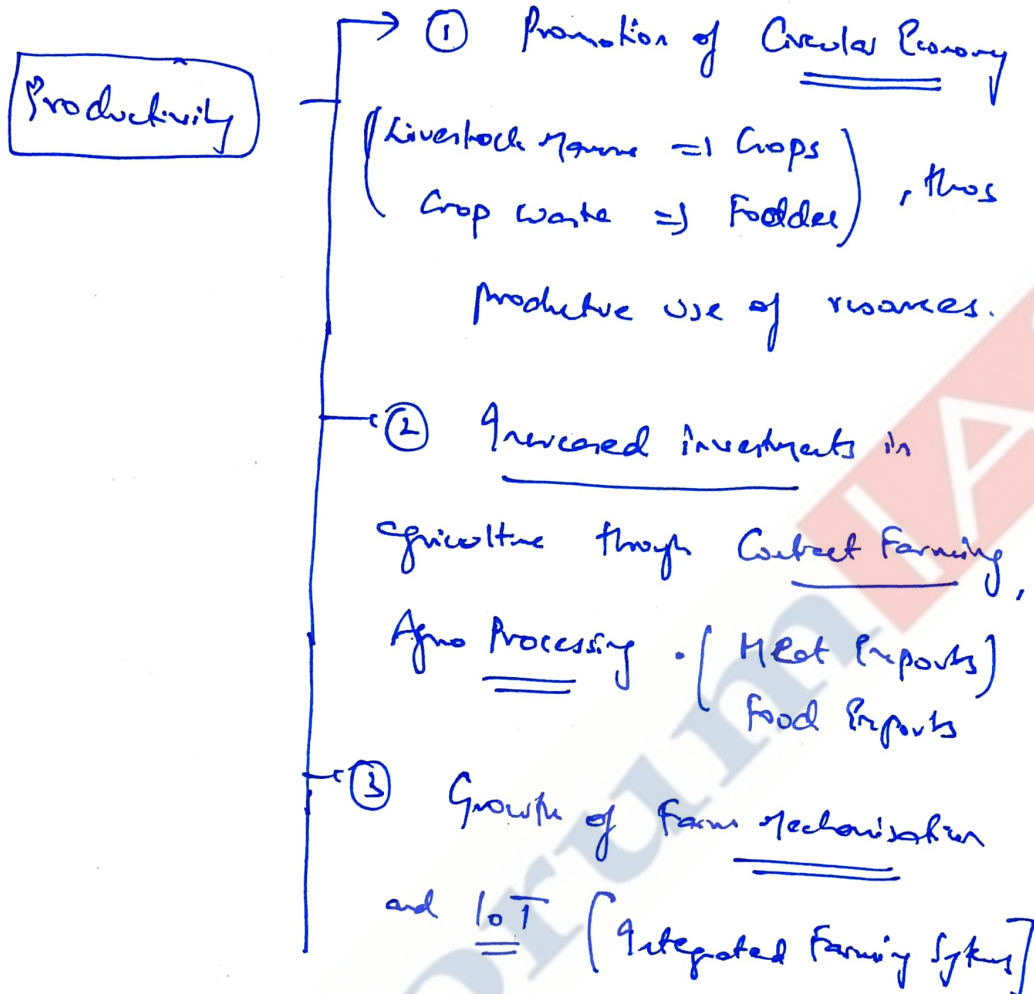 Productivity
① Promotion of Circular Economy
(Livestock Manure => Crops
Crop waste => Fodder), thus
productive use of resources.
② Increased investments in
agriculture through Contract Farming,
Agro Processing. (Meat Exports)
Food Exports
③ Growth of Farm Mechanisation
and IoT [Integrated Farming Systems]
orumIA